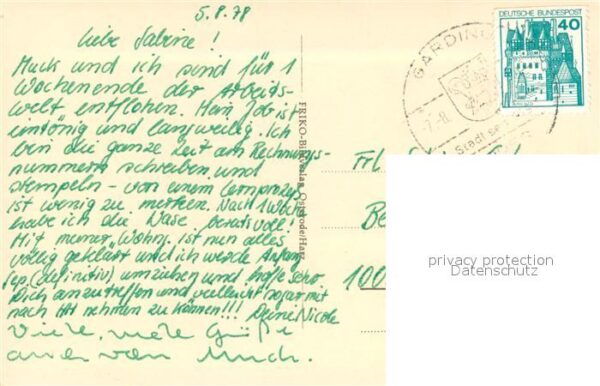 5.8.78
Liebe Sabine!
Muck und ich sind für 1
Wochenende der Arbeits-
welt entflohen. Mein Job ist
eintönig und langweilig. Ich
bin die ganze Zeit am Rechnungs-
nummern schreiben und
stempeln - von einem Lernprozeß
ist wenig zu merken. Nach 1 Woche
habe ich die Nase bereits voll!
Mit meiner Wohn. ist nun alles
völlig geklärt und ich werde Anfang
Sep. (definitiv) umziehen und hoffe sehr
Dich anzutreffen und vielleicht sogar mit
nach HH nehmen zu können!!! Deine Nicole
Viele, viele Grüße
auch von Muck.
FRIKO-Bildverlag Osterode/Harz
DEUTSCHE BUNDESPOST
40
GARDING
-7.-8.
Stadt
Frl.
Be
100
privacy protection
Datenschutz